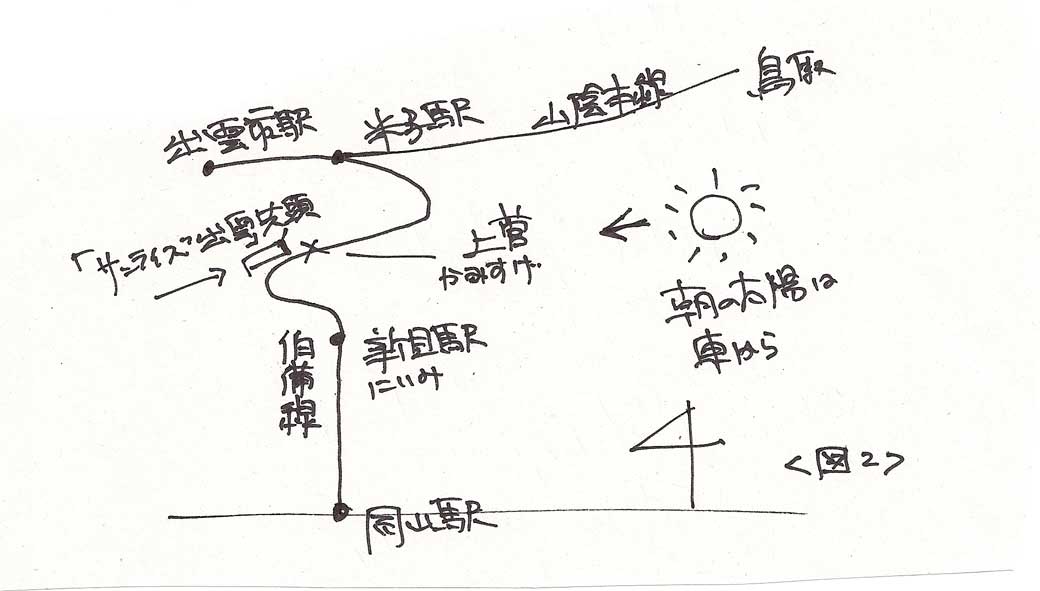 鳥取
山陰本線
米子駅
出雲市駅
「サンライズ」出雲先頭
上菅
かみすげ
朝の太陽は
東から
新見駅
にいみ
伯備線
岡山駅
<図2>